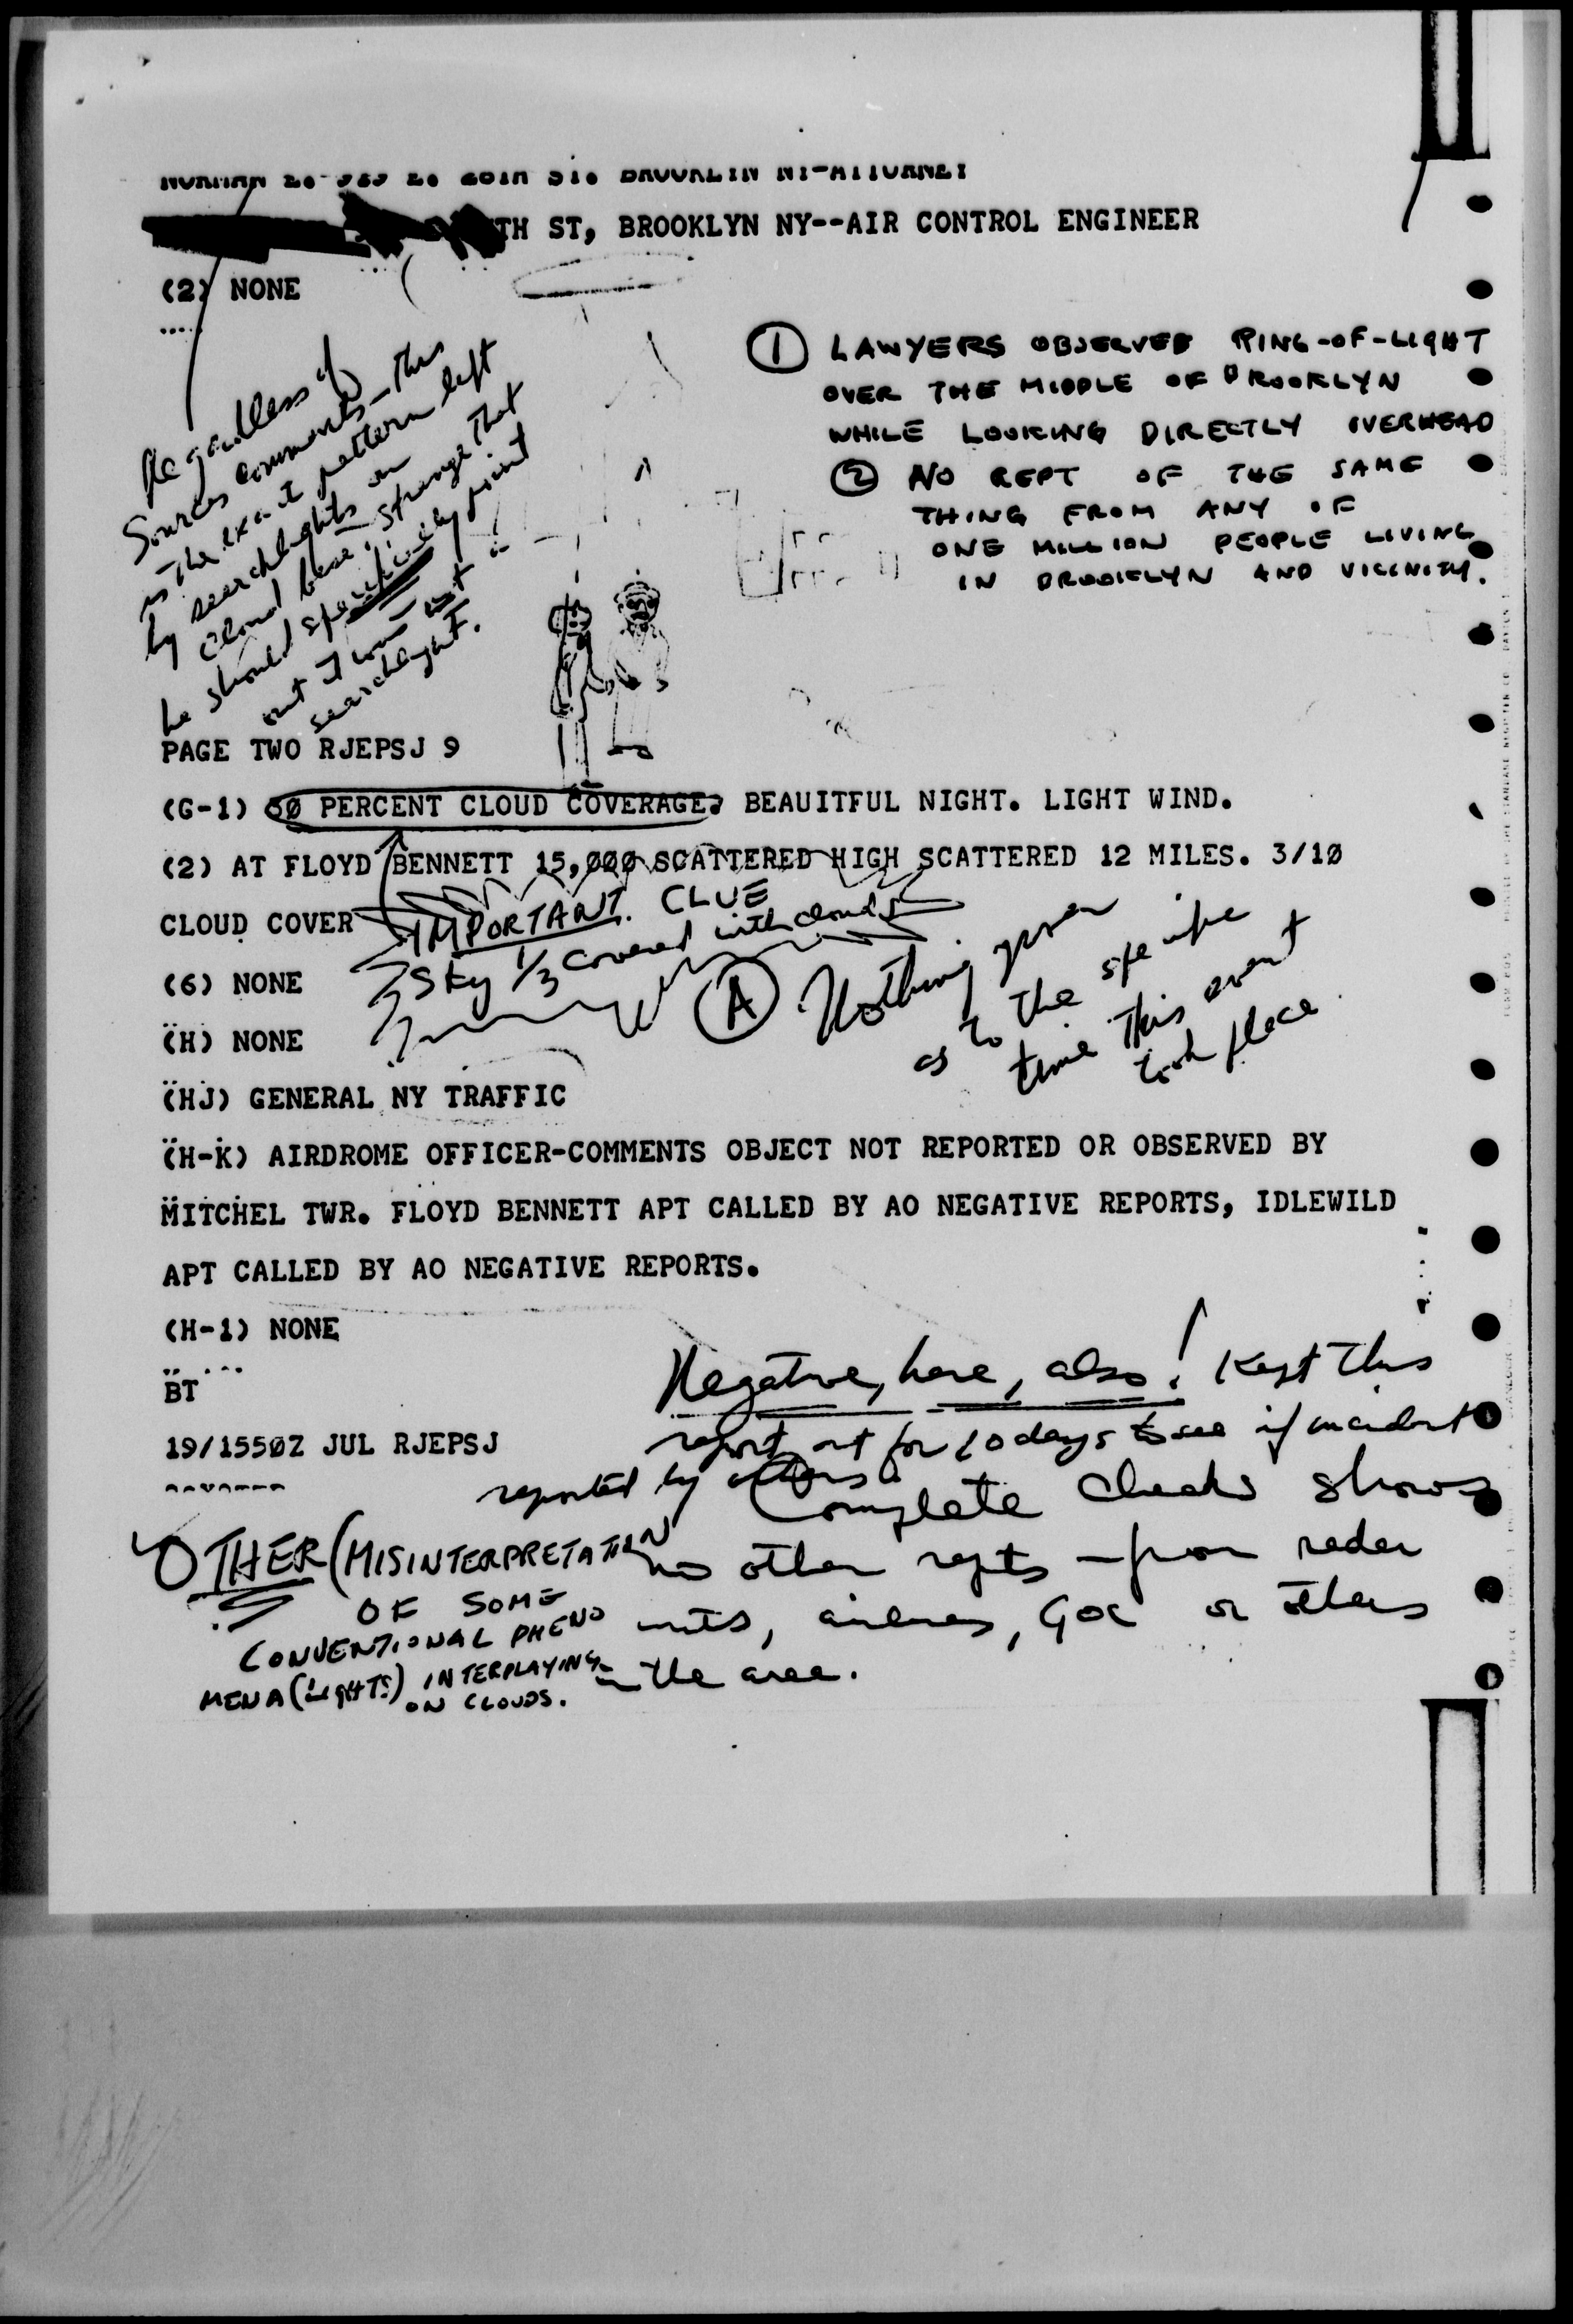 ST. BROOKLYN NY-ATTORNEY
TH ST, BROOKLYN NY--AIR CONTROL ENGINEER
(2) NONE
① LAWYERS OBSERVED RING-OF-LIGHT
OVER THE MIDDLE OF BROOKLYN
WHILE LOOKING DIRECTLY OVERHEAD
② NO REPT OF THE SAME
THING FROM ANY OF
ONE MILLION PEOPLE LIVING
IN BROOKLYN AND VICINITY.
Regardless of
Sources comments - this
is the exact pattern left
by searchlights on
cloud base; strange that
he should specifically point
out it was not a
searchlight.
PAGE TWO RJEPSJ 9
(G-1) 30 PERCENT CLOUD COVERAGE. BEAUITFUL NIGHT. LIGHT WIND.
(2) AT FLOYD BENNETT 15,000 SCATTERED HIGH SCATTERED 12 MILES. 3/10
CLOUD COVER
IMPORTANT CLUE
Sky 1/3 covered with clouds
(6) NONE
Ⓐ Nothing given
as to the specific
time this event
took place
(H) NONE
(HJ) GENERAL NY TRAFFIC
(H-K) AIRDROME OFFICER-COMMENTS OBJECT NOT REPORTED OR OBSERVED BY
MITCHEL TWR. FLOYD BENNETT APT CALLED BY AO NEGATIVE REPORTS, IDLEWILD
APT CALLED BY AO NEGATIVE REPORTS.
(H-1) NONE
BT
19/1550Z JUL RJEPSJ
Negative, here, also! Kept this
report out for 10 days to see if incident
reported by others. Complete checks shows
no other repts - from radar
units, airlines, GOC or others
in the area.
OTHER (MISINTERPRETATION
OF SOME
CONVENTIONAL PHENO
MENA (LIGHTS) INTERPLAYING
ON CLOUDS.